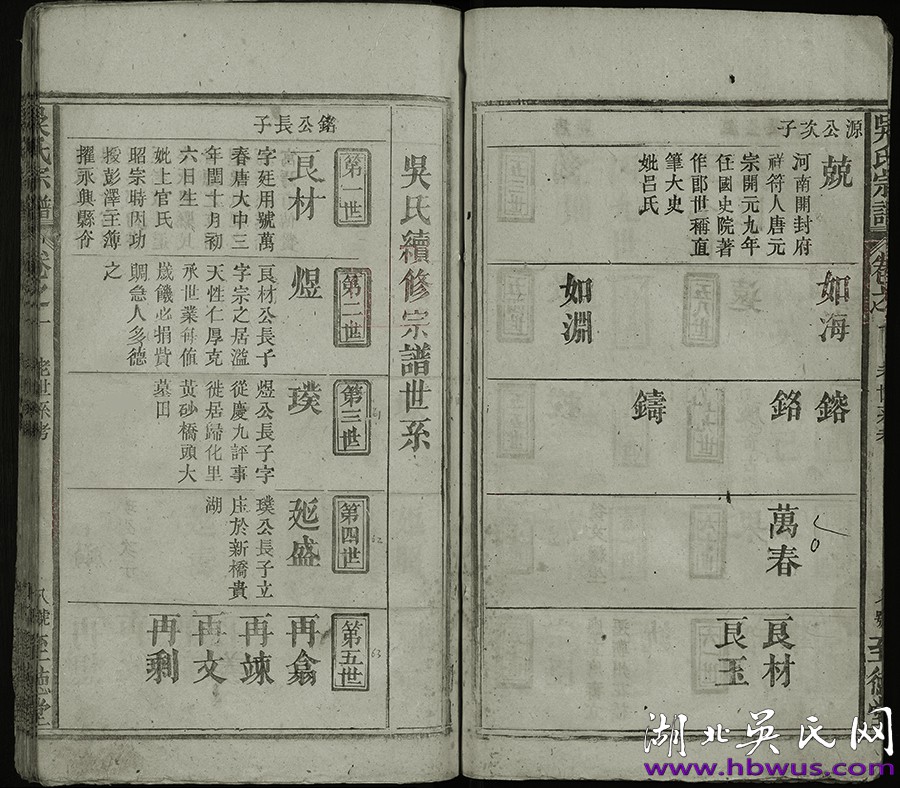 吳氏宗譜
源公次子
兢
河南開封府
祥符人唐元
宗開元九年
任國史院著
作郎世稱直
筆大史
妣呂氏
如海
如淵
鎔
銘
鑄
萬春
艮材
艮玉
吳氏續修宗譜世系
第一世
銘公長子
艮材
字廷用號萬
春唐大中三
年閏十月初
六日生
妣上官氏
昭宗時因功
授彭澤主簿
擢永興縣令
第二世
煜
艮材公長子
字宗之居滥
天性仁厚克
承世業每值
歲饑必捐貲
賙急人多德
之
第三世
璞
煜公長子字
從慶九評事
徙居歸化里
黃砂橋頭大
墓田
第四世
延盛
璞公長子立
庄於新橋貴
湖
第五世
再翕
再竦
再文
再剩
吳氏宗譜
卷之一
老世系考
八號
至德堂
湖北吴氏网
www.hbwus.com